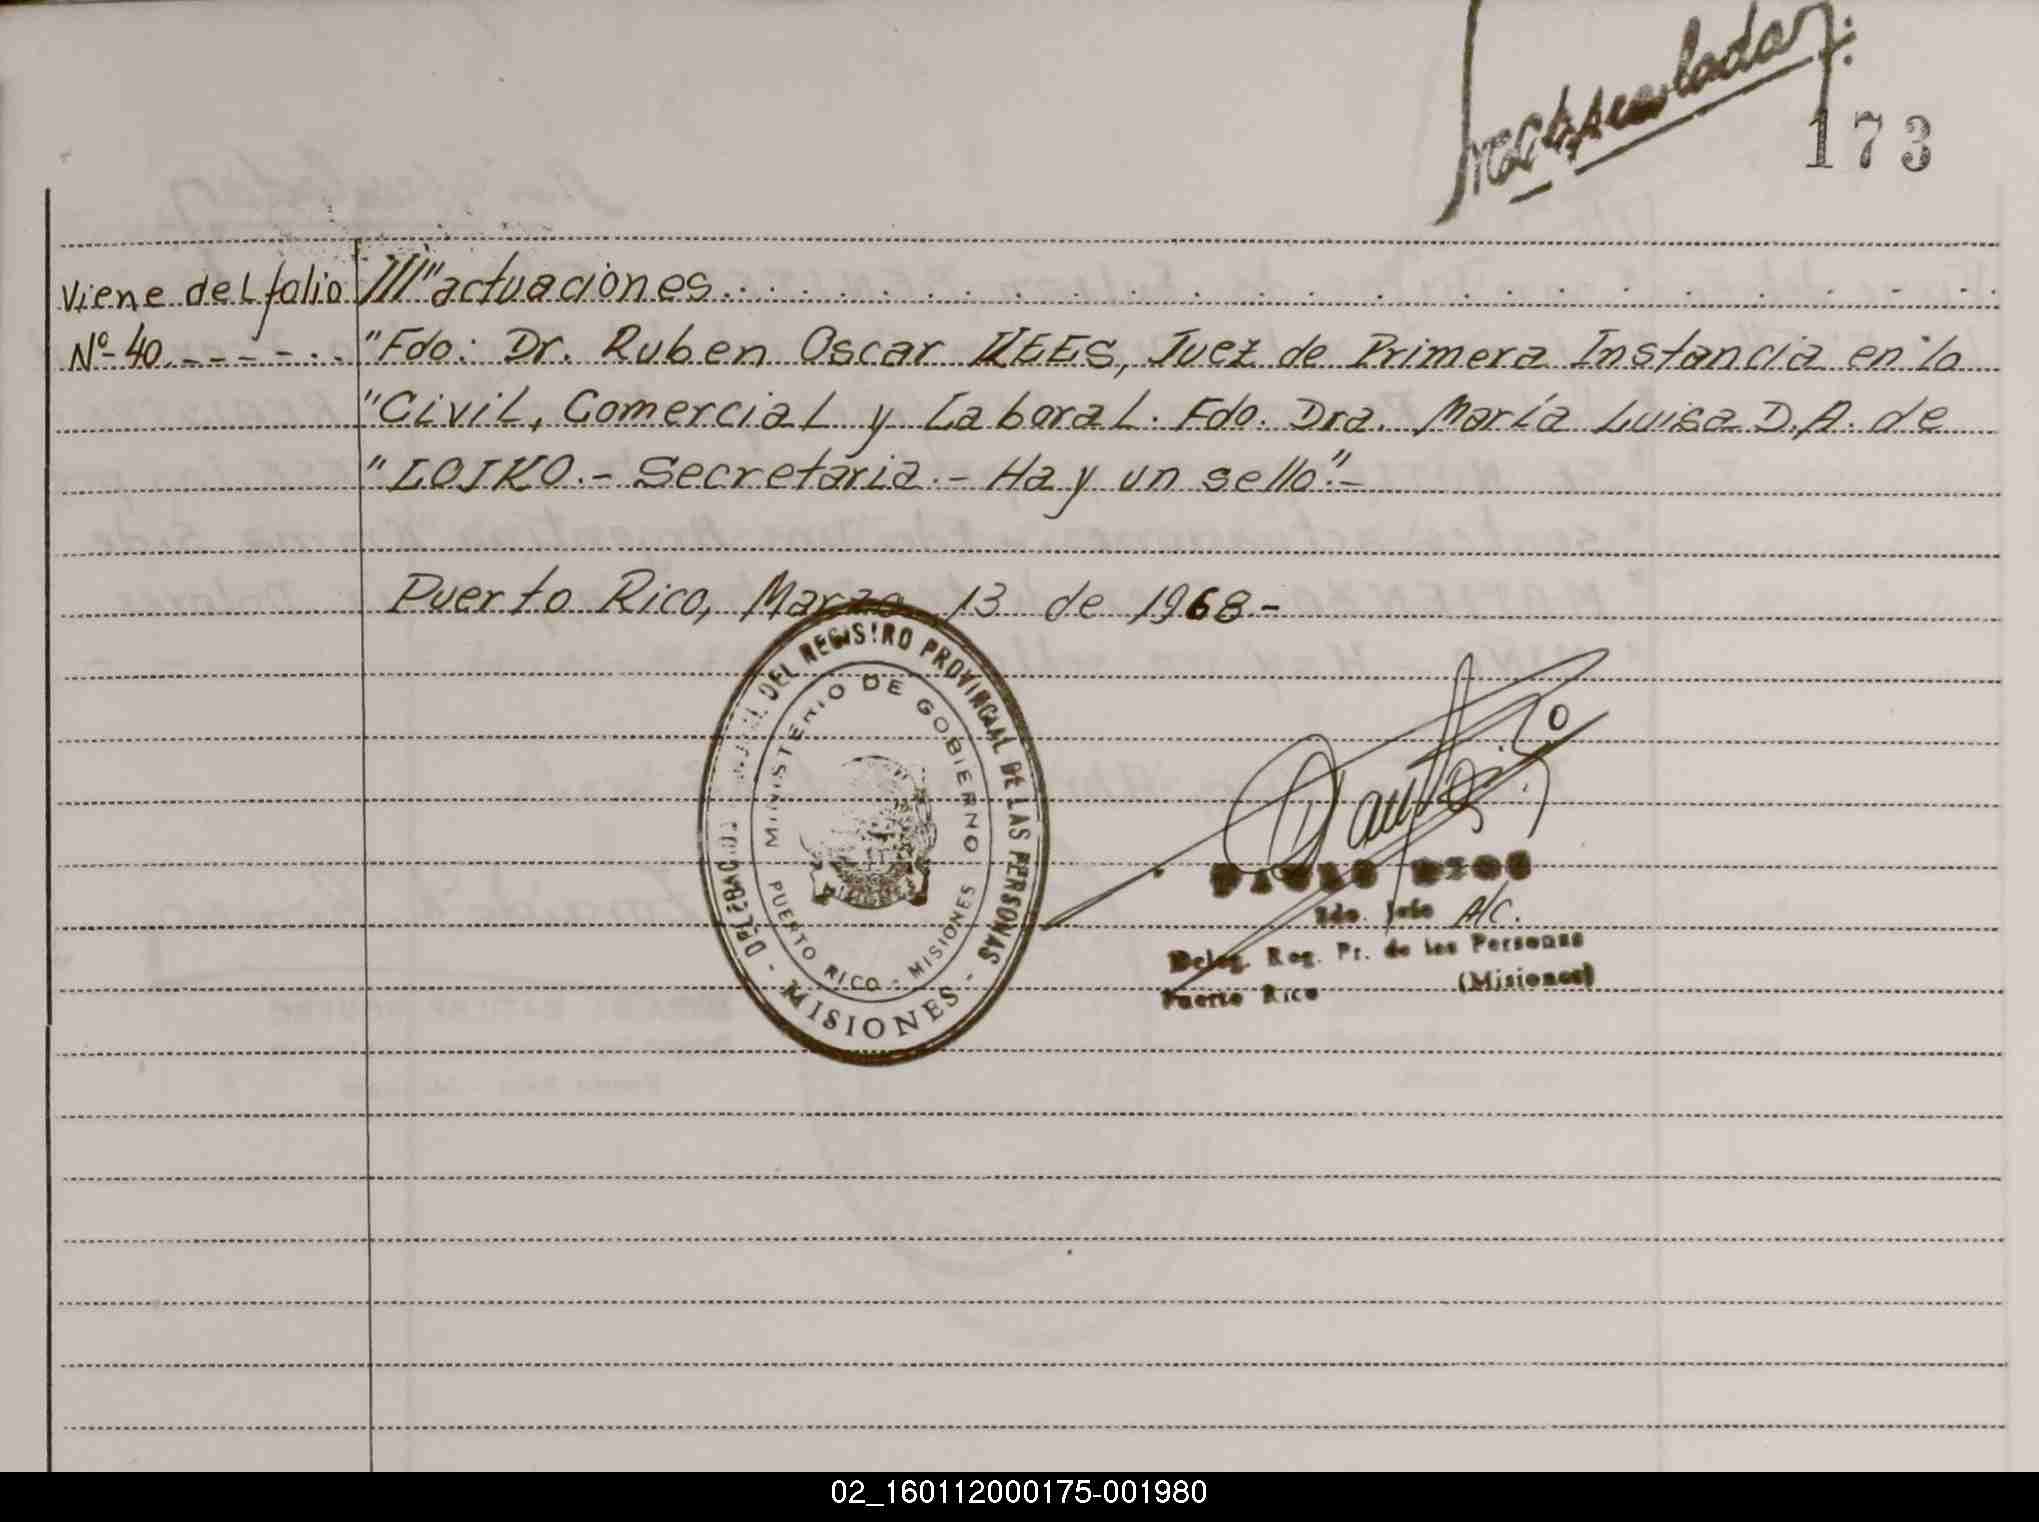 173
Viene del folio
Nº 40.----..
///"actuaciones. . . . . . . . . . . . . . . . . . . . .
"Fdo: Dr. Ruben Oscar KEES, Juez de Primera Instancia en lo
"Civil, Comercial y Laboral. Fdo. Dra. María Luisa D.A. de
"LOJKO.- Secretaria.- Hay un sello".-
Puerto Rico, Marzo 13 de 1968-
DEL REGISTRO PROVINCIAL DE LAS PERSONAS
- MISIONES -
MINISTERIO DE GOBIERNO
PUERTO RICO - MISIONES
2do. Jefe A/C.
Deleg. Reg. Pr. de las Personas
Puerto Rico (Misiones)
02_160112000175-001980